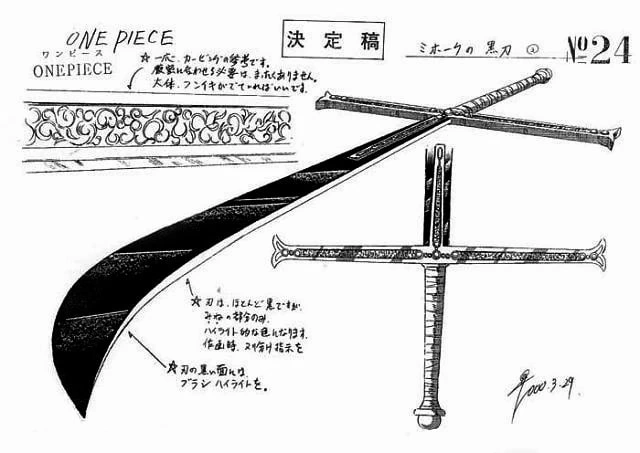 ONE PIECE
ワンピース
ONEPIECE
決定稿
ミホークの黒刀 ②
No 24
☆ 一応、カービングの参考です。
厳密に合わせる必要は、まったくありません。
大体、フンイキがでてればいいです。
☆ 刃は、ほとんど黒ですが、
みねの部分のみ、
ハイライト的な色になります。
作画時、ヌリ分け指示を
☆ 刃の黒い面には、
ブラシハイライトを。
2000.3.29.